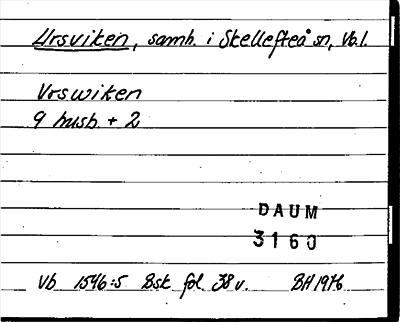 Ursviken, samh. i Skellefteå sn, Vb.l.
Vrswiken
9 husb. + 2
DAUM
3160
Vb 1546:5 Bsk fol. 38 v. BH 1976